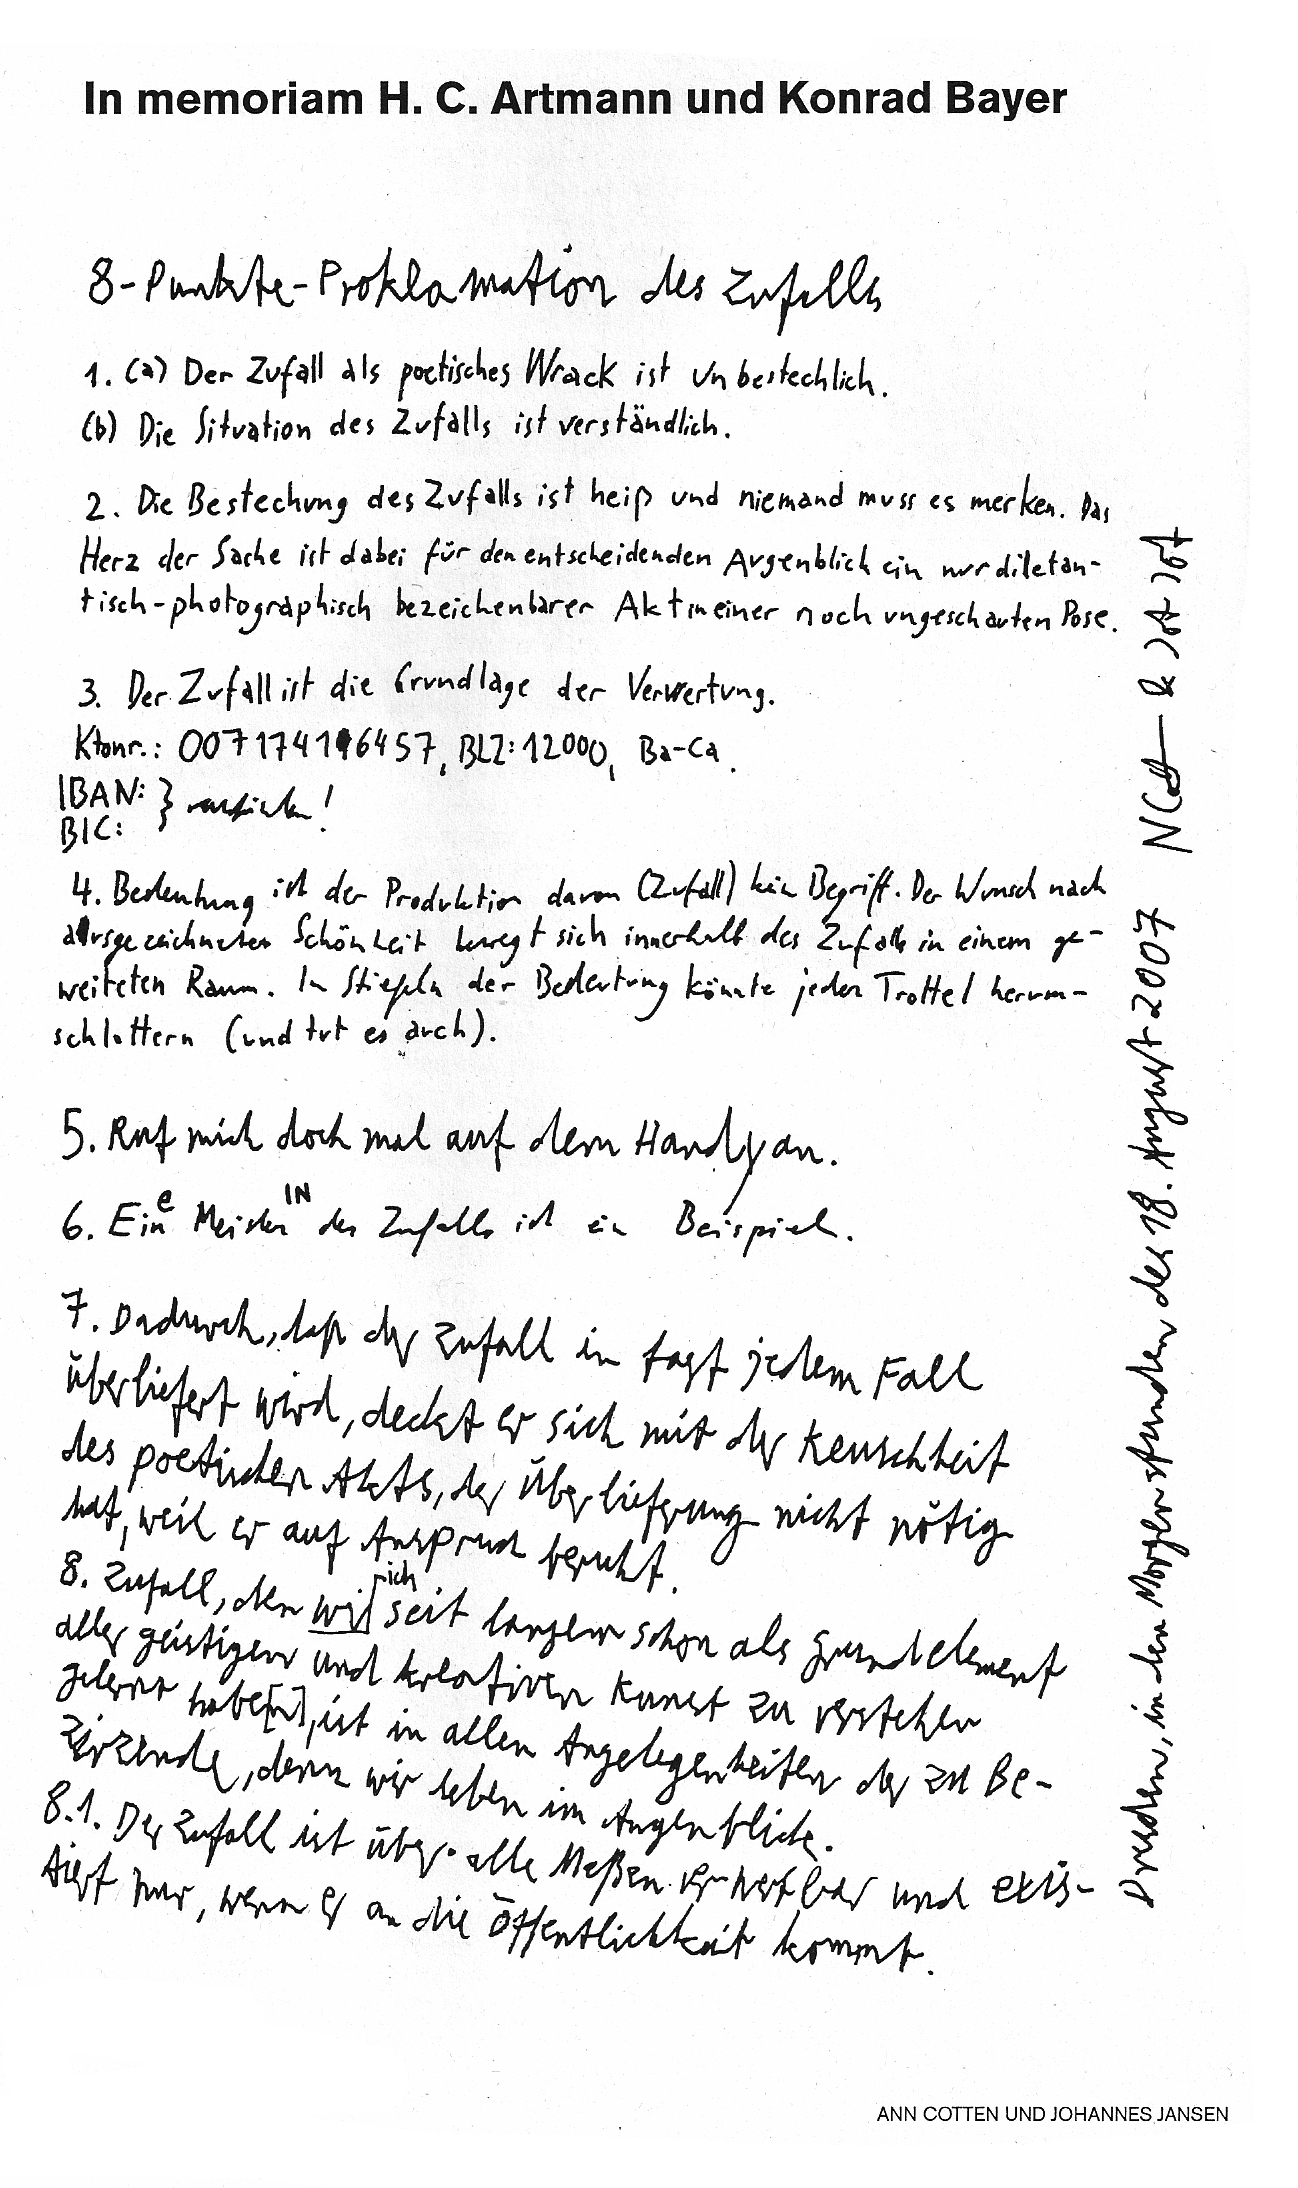 In memoriam H. C. Artmann und Konrad Bayer
8-Punkte-Proklamation des Zufalls
1. (a) Der Zufall als poetisches Wrack ist unbestechlich.
(b) Die Situation des Zufalls ist verständlich.
2. Die Bestechung des Zufalls ist heiß und niemand muss es merken. Das
Herz der Sache ist dabei für den entscheidenden Augenblick ein nur diletan-
tisch-photographisch bezeichenbarer Akt in einer noch ungeschauten Pose.
3. Der Zufall ist die Grundlage der Verwertung.
Ktonr.: 007174196457, BLZ: 12000, Ba-Ca.
IBAN: }
BIC: !
4. Bedeutung ist der Produktion davon (Zufall) kein Begriff. Der Wunsch nach
ausgezeichneter Schönheit bewegt sich innerhalb des Zufalls in einem ge-
weiteten Raum. In Stiefeln der Bedeutung könnte jeder Trottel herum-
schlottern (und tut es auch).
5. Ruf mich doch mal auf dem Handy an.
6. Eine MeisterIN des Zufalls ist ein Beispiel.
7. Dadurch, daß der Zufall in fast jedem Fall
überliefert wird, deckt er sich mit der Keuschheit
des poetischen Akts, der Überlieferung nicht nötig
hat, weil er auf Anspruch beruht.
8. Zufall, den wir ich seit langem schon als Grundelement
aller geistigen und kreativen Kunst zu verstehen
gelernt habe[n], ist in allen Angelegenheiten der zu Be-
zirzende, denn wir leben im Augenblick.
8.1. Der Zufall ist über alle Maßen verwertbar und exis-
tiert nur, wenn er an die Öffentlichkeit kommt.
Dresden, in den Morgenstunden des 18. August 2007
ANN COTTEN UND JOHANNES JANSEN